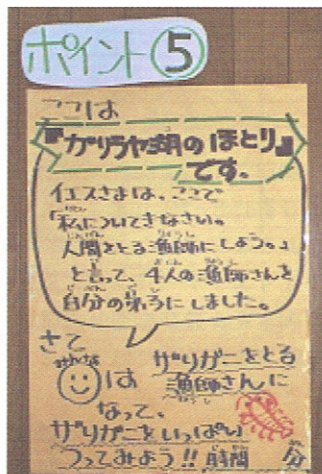 ポイント⑤
ここは
『ガリラヤ湖のほとり』
です。
イエスさまは、ここで
「私についてきなさい。
人間をとる漁師にしよう。」
と言って、4人の漁師さんを
自分の弟子にしました。
さて
みんな
は
ザリガニをとる
漁師さんに
なって、
ザリガニをいっぱい
つってみよう!!